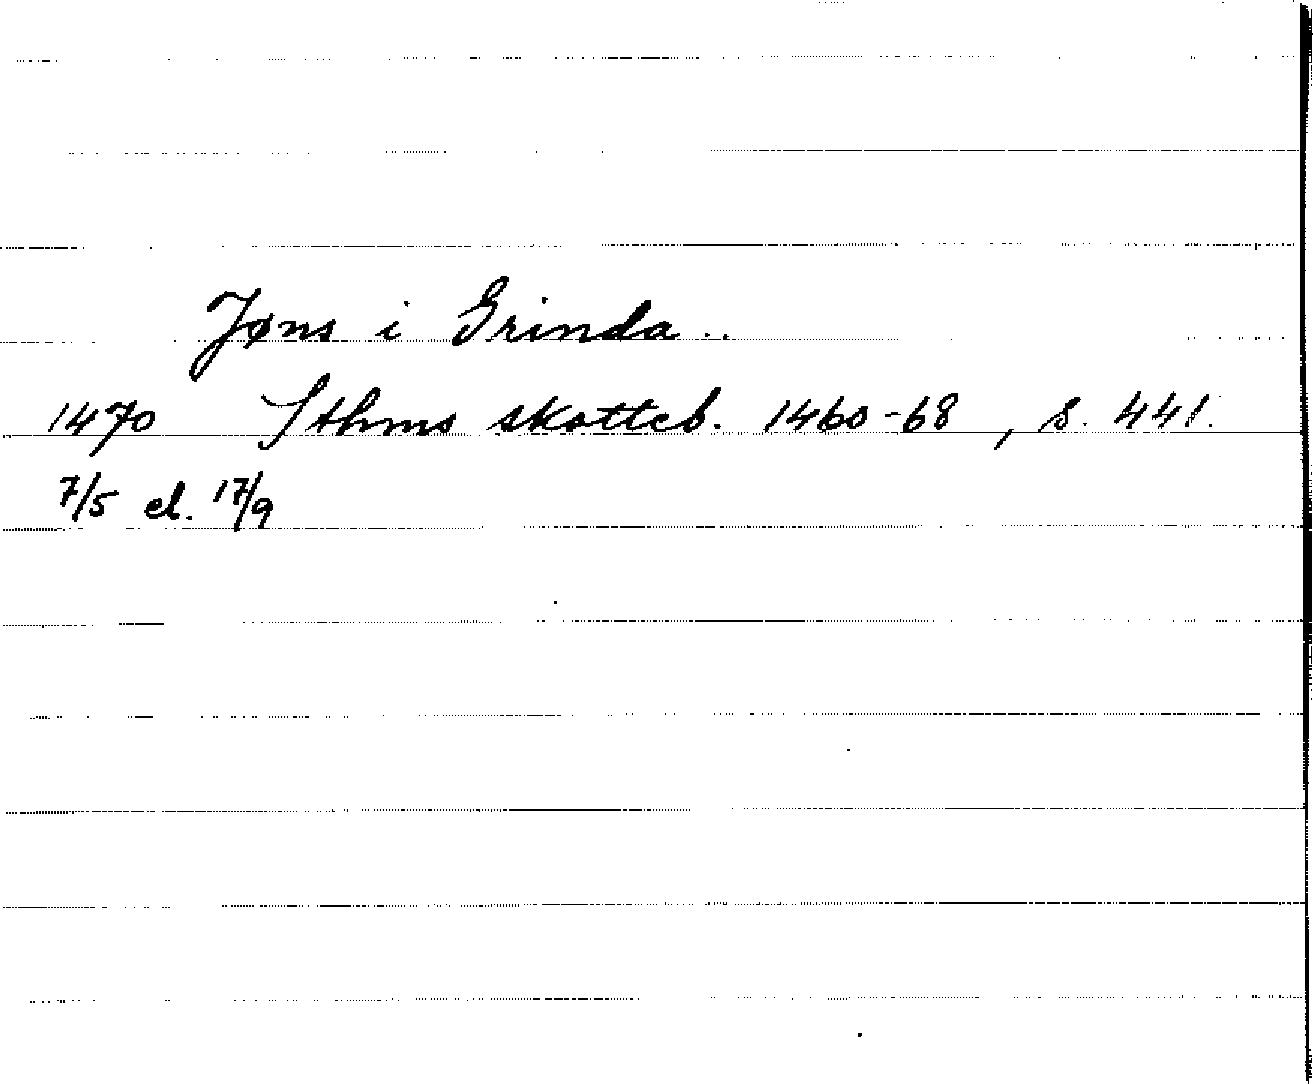 Jøns i Grinda ..
1470 Sthms skatteb. 1460-68, s. 441.
7/5 el. 17/9